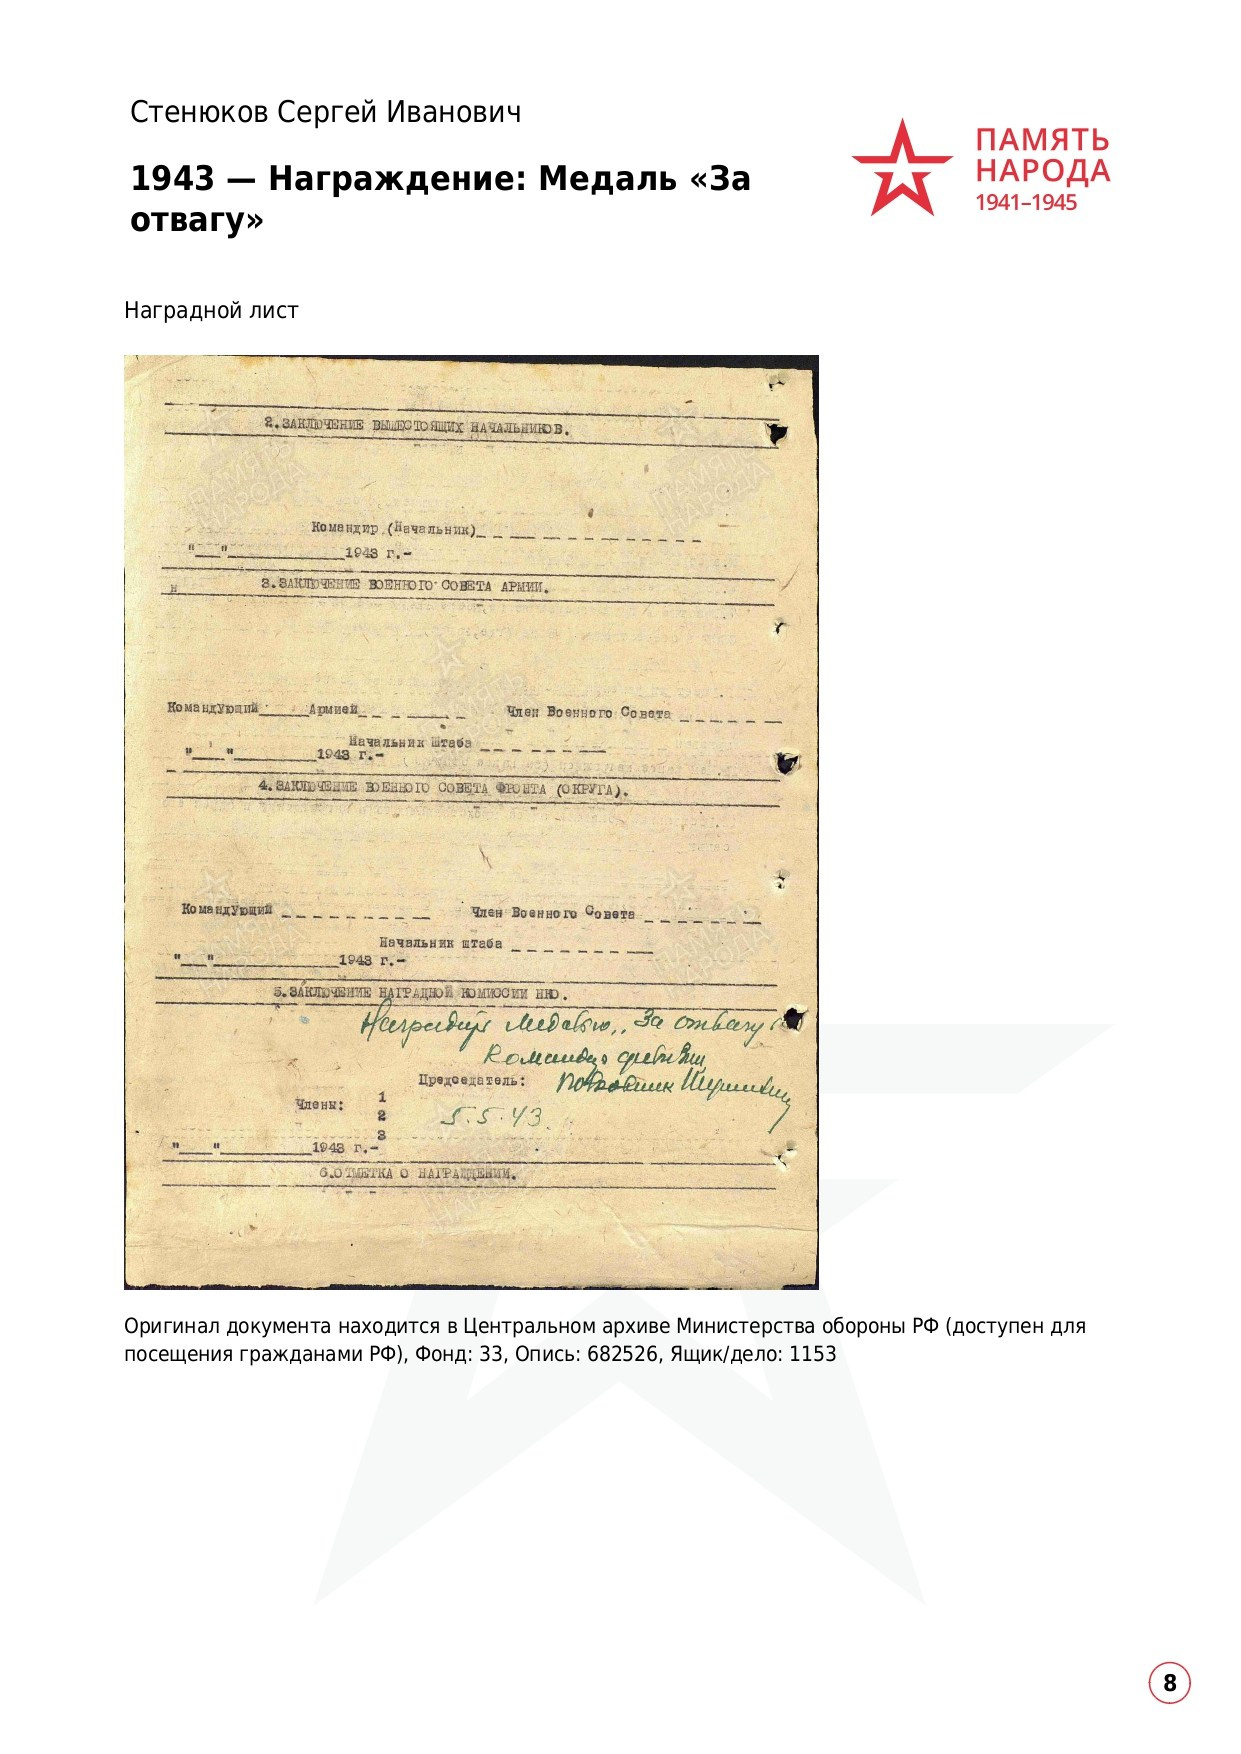 Стенюков Сергей Иванович
1943 — Награждение: Медаль «За
отвагу»
ПАМЯТЬ
НАРОДА
1941–1945
Наградной лист
2.ЗАКЛЮЧЕНИЕ ВЫШЕСТОЯЩИХ НАЧАЛЬНИКОВ.
Командир (Начальник)_ _ _ _ _ _ _ _ _ _
"___"____________1943 г.-
3.ЗАКЛЮЧЕНИЕ ВОЕННОГО СОВЕТА АРМИИ.
н
Командующий_____Армией_ _ _ _ _ _ Член Военного Совета _ _ _ _ _ _
Начальник Штаба _ _ _ _ _ _ _
"___"_________1943 г.-
4.ЗАКЛЮЧЕНИЕ ВОЕННОГО СОВЕТА ФРОНТА (ОКРУГА).
Командующий _ _ _ _ _ _ _ _ Член Военного Совета _ _ _ _ _ _
Начальник штаба _ _ _ _ _ _ _
"___"_____________1943 г.-
5.ЗАКЛЮЧЕНИЕ НАГРАДНОЙ КОМИССИИ НКО.
Наградить Медалью „За отвагу"
Командир дивизии
Председатель: Полковник
Члены: 1
2 5.5.43.
3
"___"__________1943 г.-
6.ОТМЕТКА О НАГРАЖДЕНИИ.
Оригинал документа находится в Центральном архиве Министерства обороны РФ (доступен для
посещения гражданами РФ), Фонд: 33, Опись: 682526, Ящик/дело: 1153
8